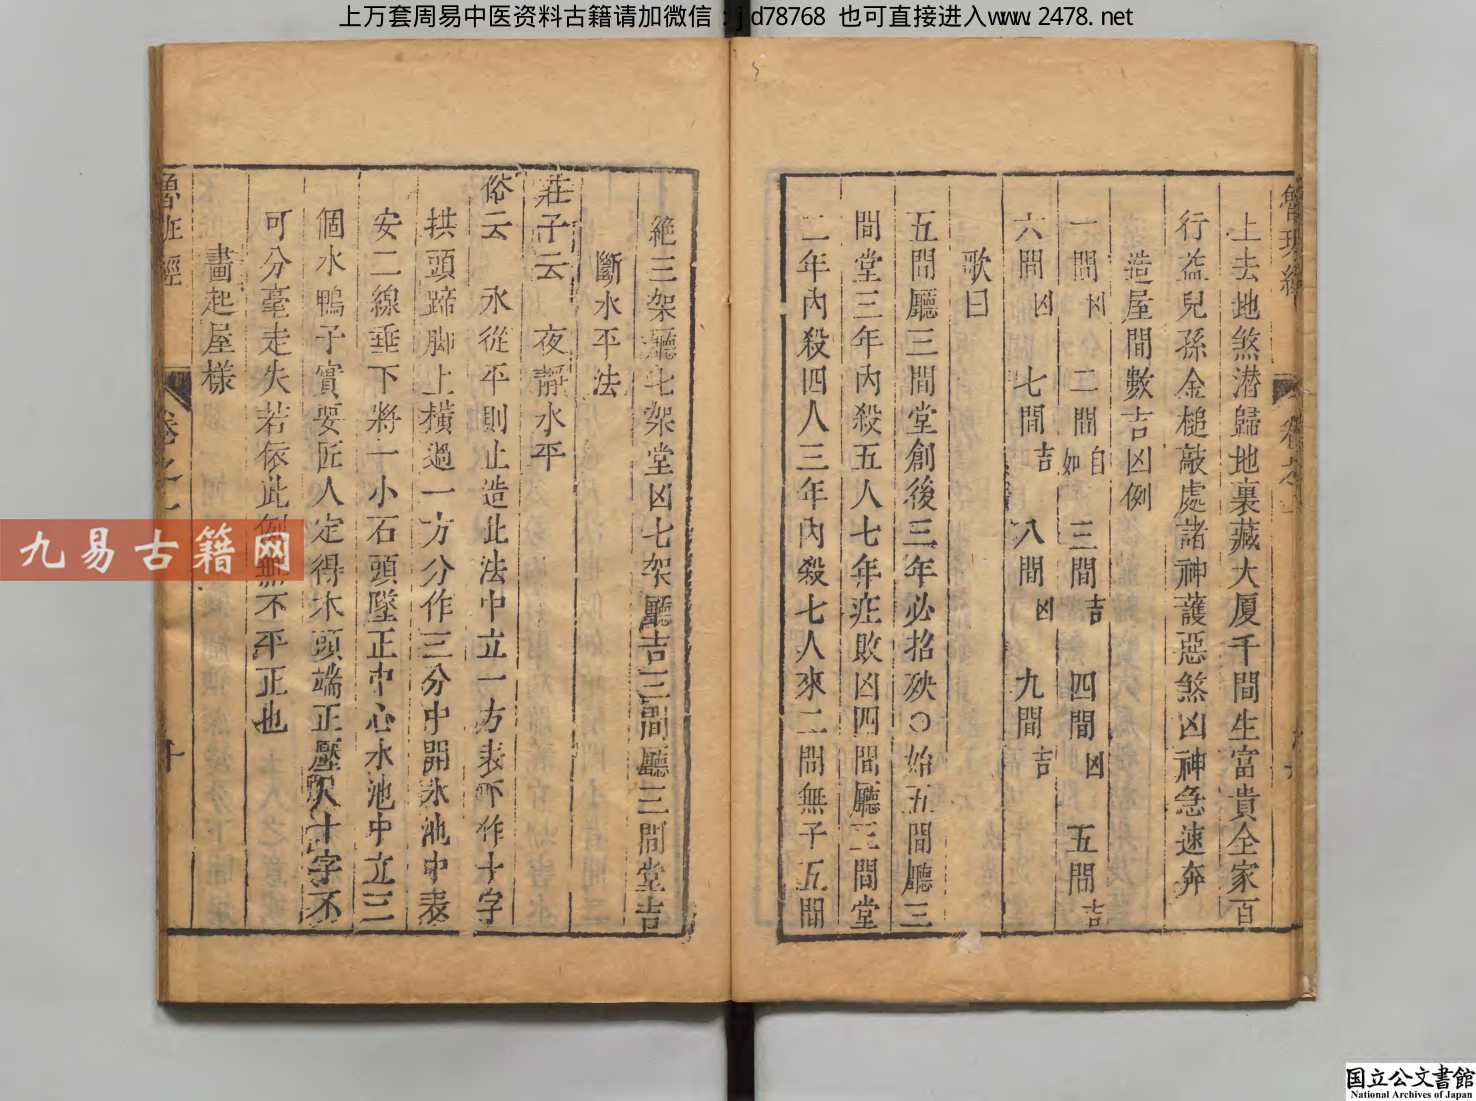 上万套周易中医资料古籍请加微信：jd78768 也可直接进入www.2478.net
上去地煞潜歸地裏藏大厦千間生富貴全家百
行益兒孫金槌敲處諸神護惡煞凶神急速奔
造屋間數吉凶例
一間凶 二間自如 三間吉 四間凶 五間吉
六間凶 七間吉 八間凶 九間吉
歌曰
五間廳三間堂創後三年必招殃○始五間廳三
間堂三年內殺五人七年庄敗凶四間廳三間堂
二年內殺四人三年內殺七人來二間無子五間
絶三架廳七架堂凶七架廳吉三間廳三間堂吉
斷水平法
莊子云 夜靜水平
俗云 水從平則止造此法中立一方表下作十字
拱頭蹄脚上横過一方分作三分中開水池中表
安二線垂下將一小石頭墜正中心水池中立三
個水鴨子實要匠人定得木頭端正壓尺十字不
可分毫走失若依此例無不平正也
畫起屋樣
魯班經
卷之一
十
九易古籍网
国立公文書館
National Archives of Japan